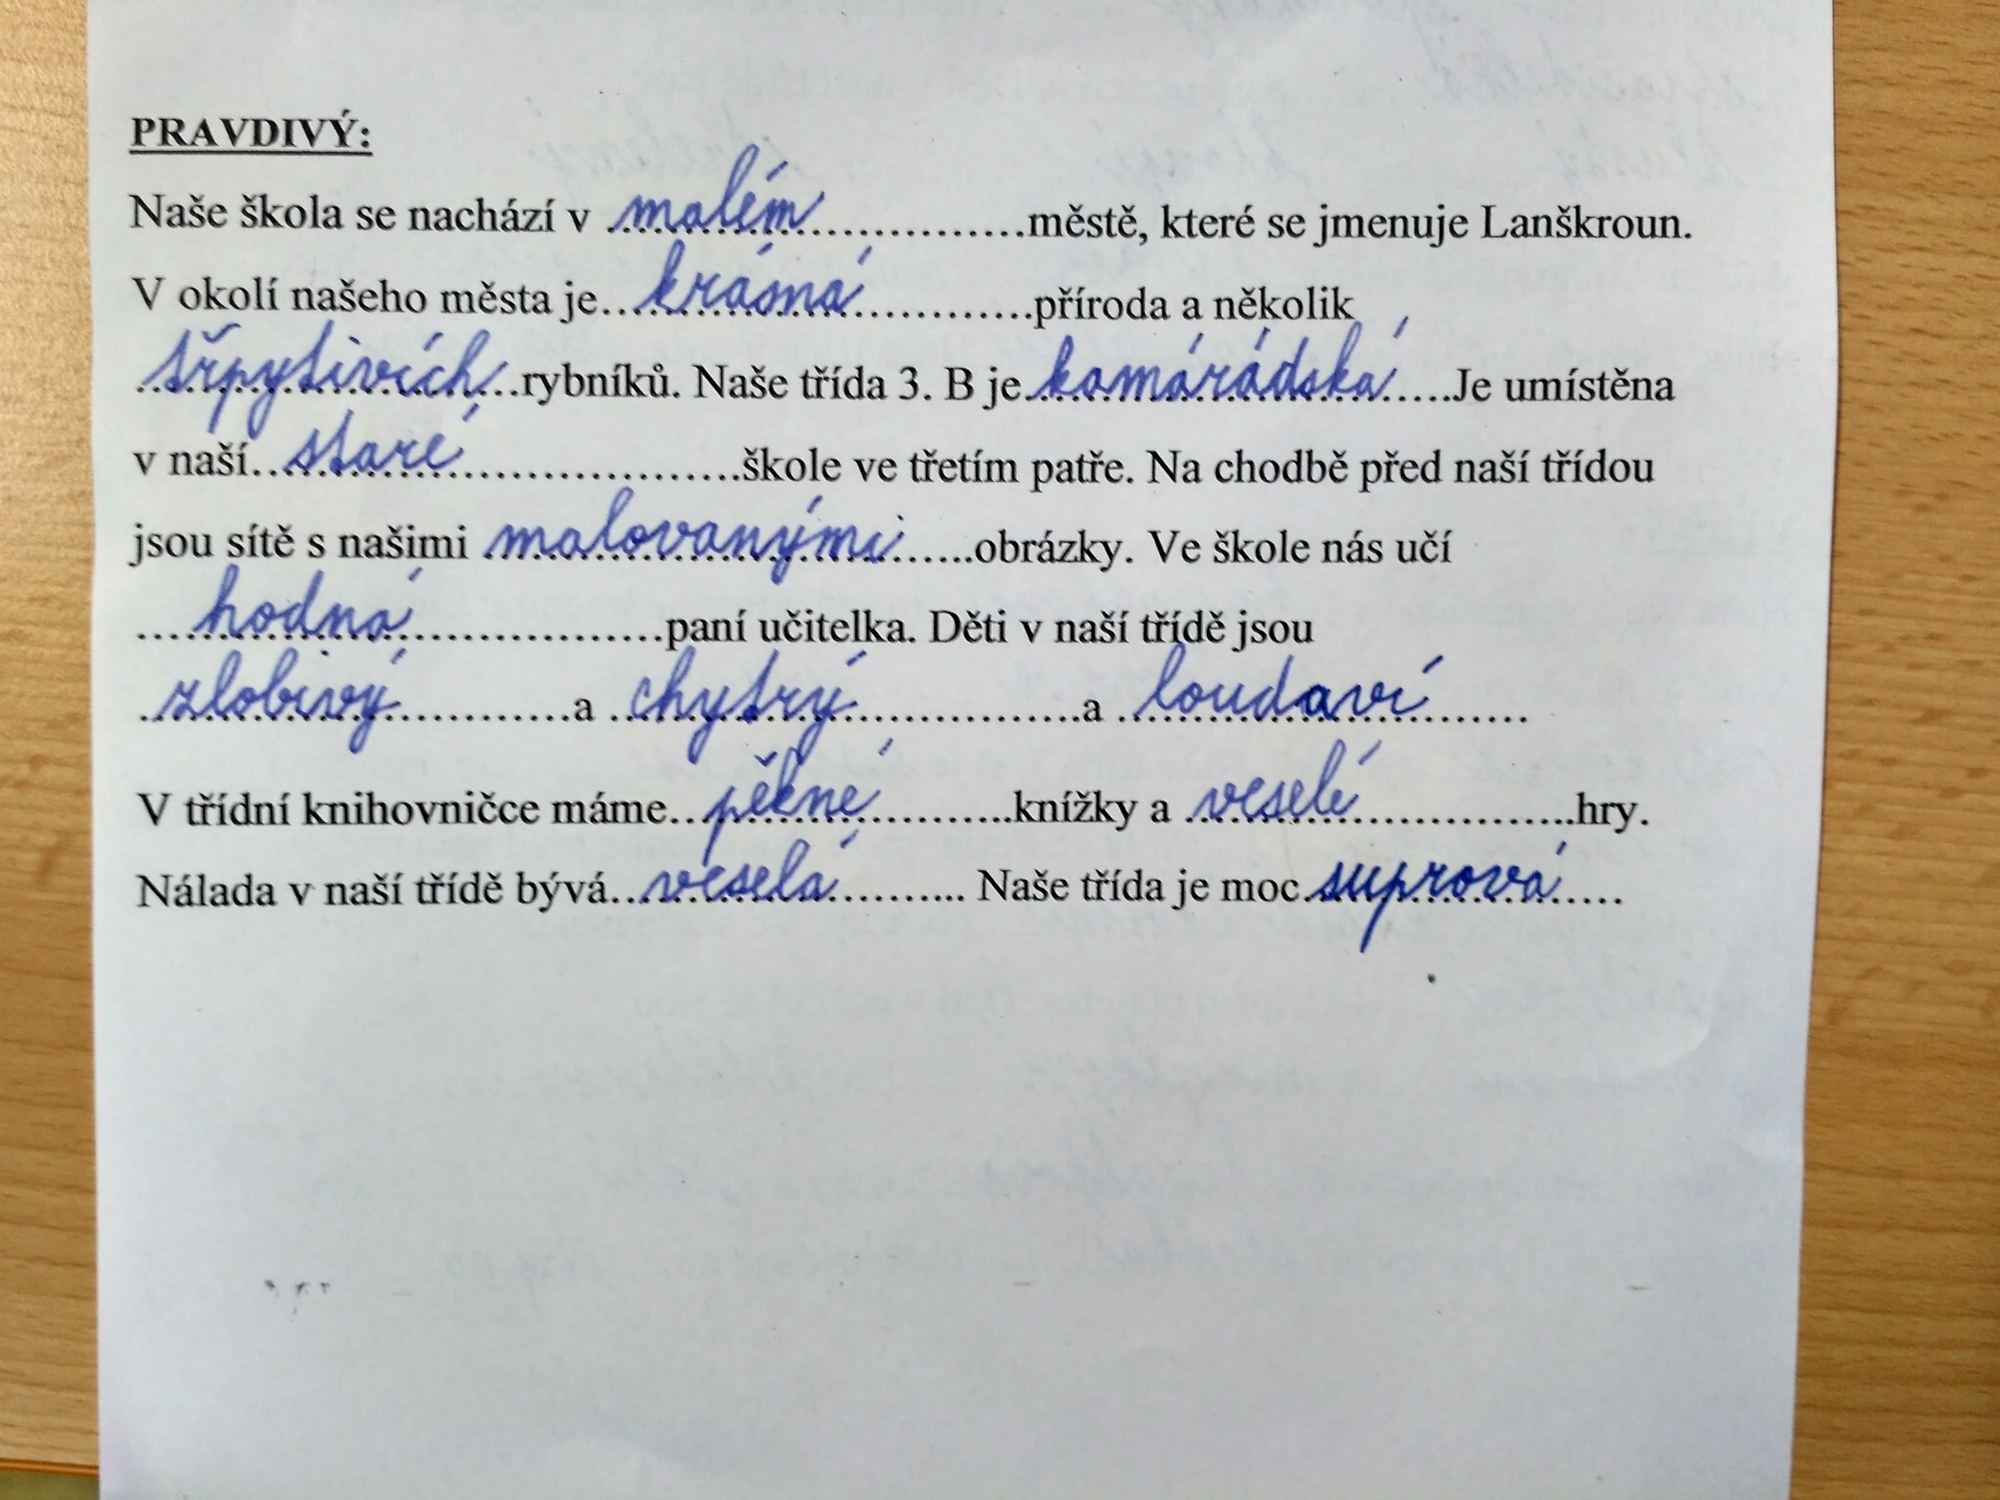 PRAVDIVÝ:
Naše škola se nachází v malém městě, které se jmenuje Lanškroun.
V okolí našeho města je krásná příroda a několik
třpytivích rybníků. Naše třída 3. B je kamárádská Je umístěna
v naší staré škole ve třetím patře. Na chodbě před naší třídou
jsou sítě s našimi malovanými obrázky. Ve škole nás učí
hodná paní učitelka. Děti v naší třídě jsou
zlobivý a chytrý a loudaví
V třídní knihovničce máme pěkné knížky a veselé hry.
Nálada v naší třídě bývá veselá Naše třída je moc suprová